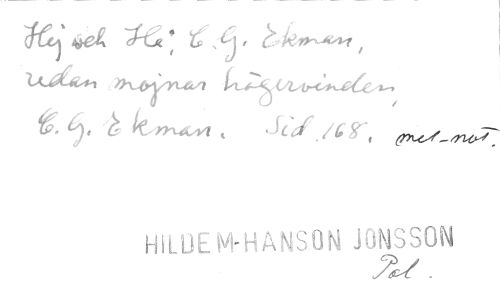 Hej och Hå, C. G. Ekman,
redan mojnar högervinden,
C. G. Ekman. Sid. 168. mel-not.
HILDEM-HANSON JONSSON
Pol.